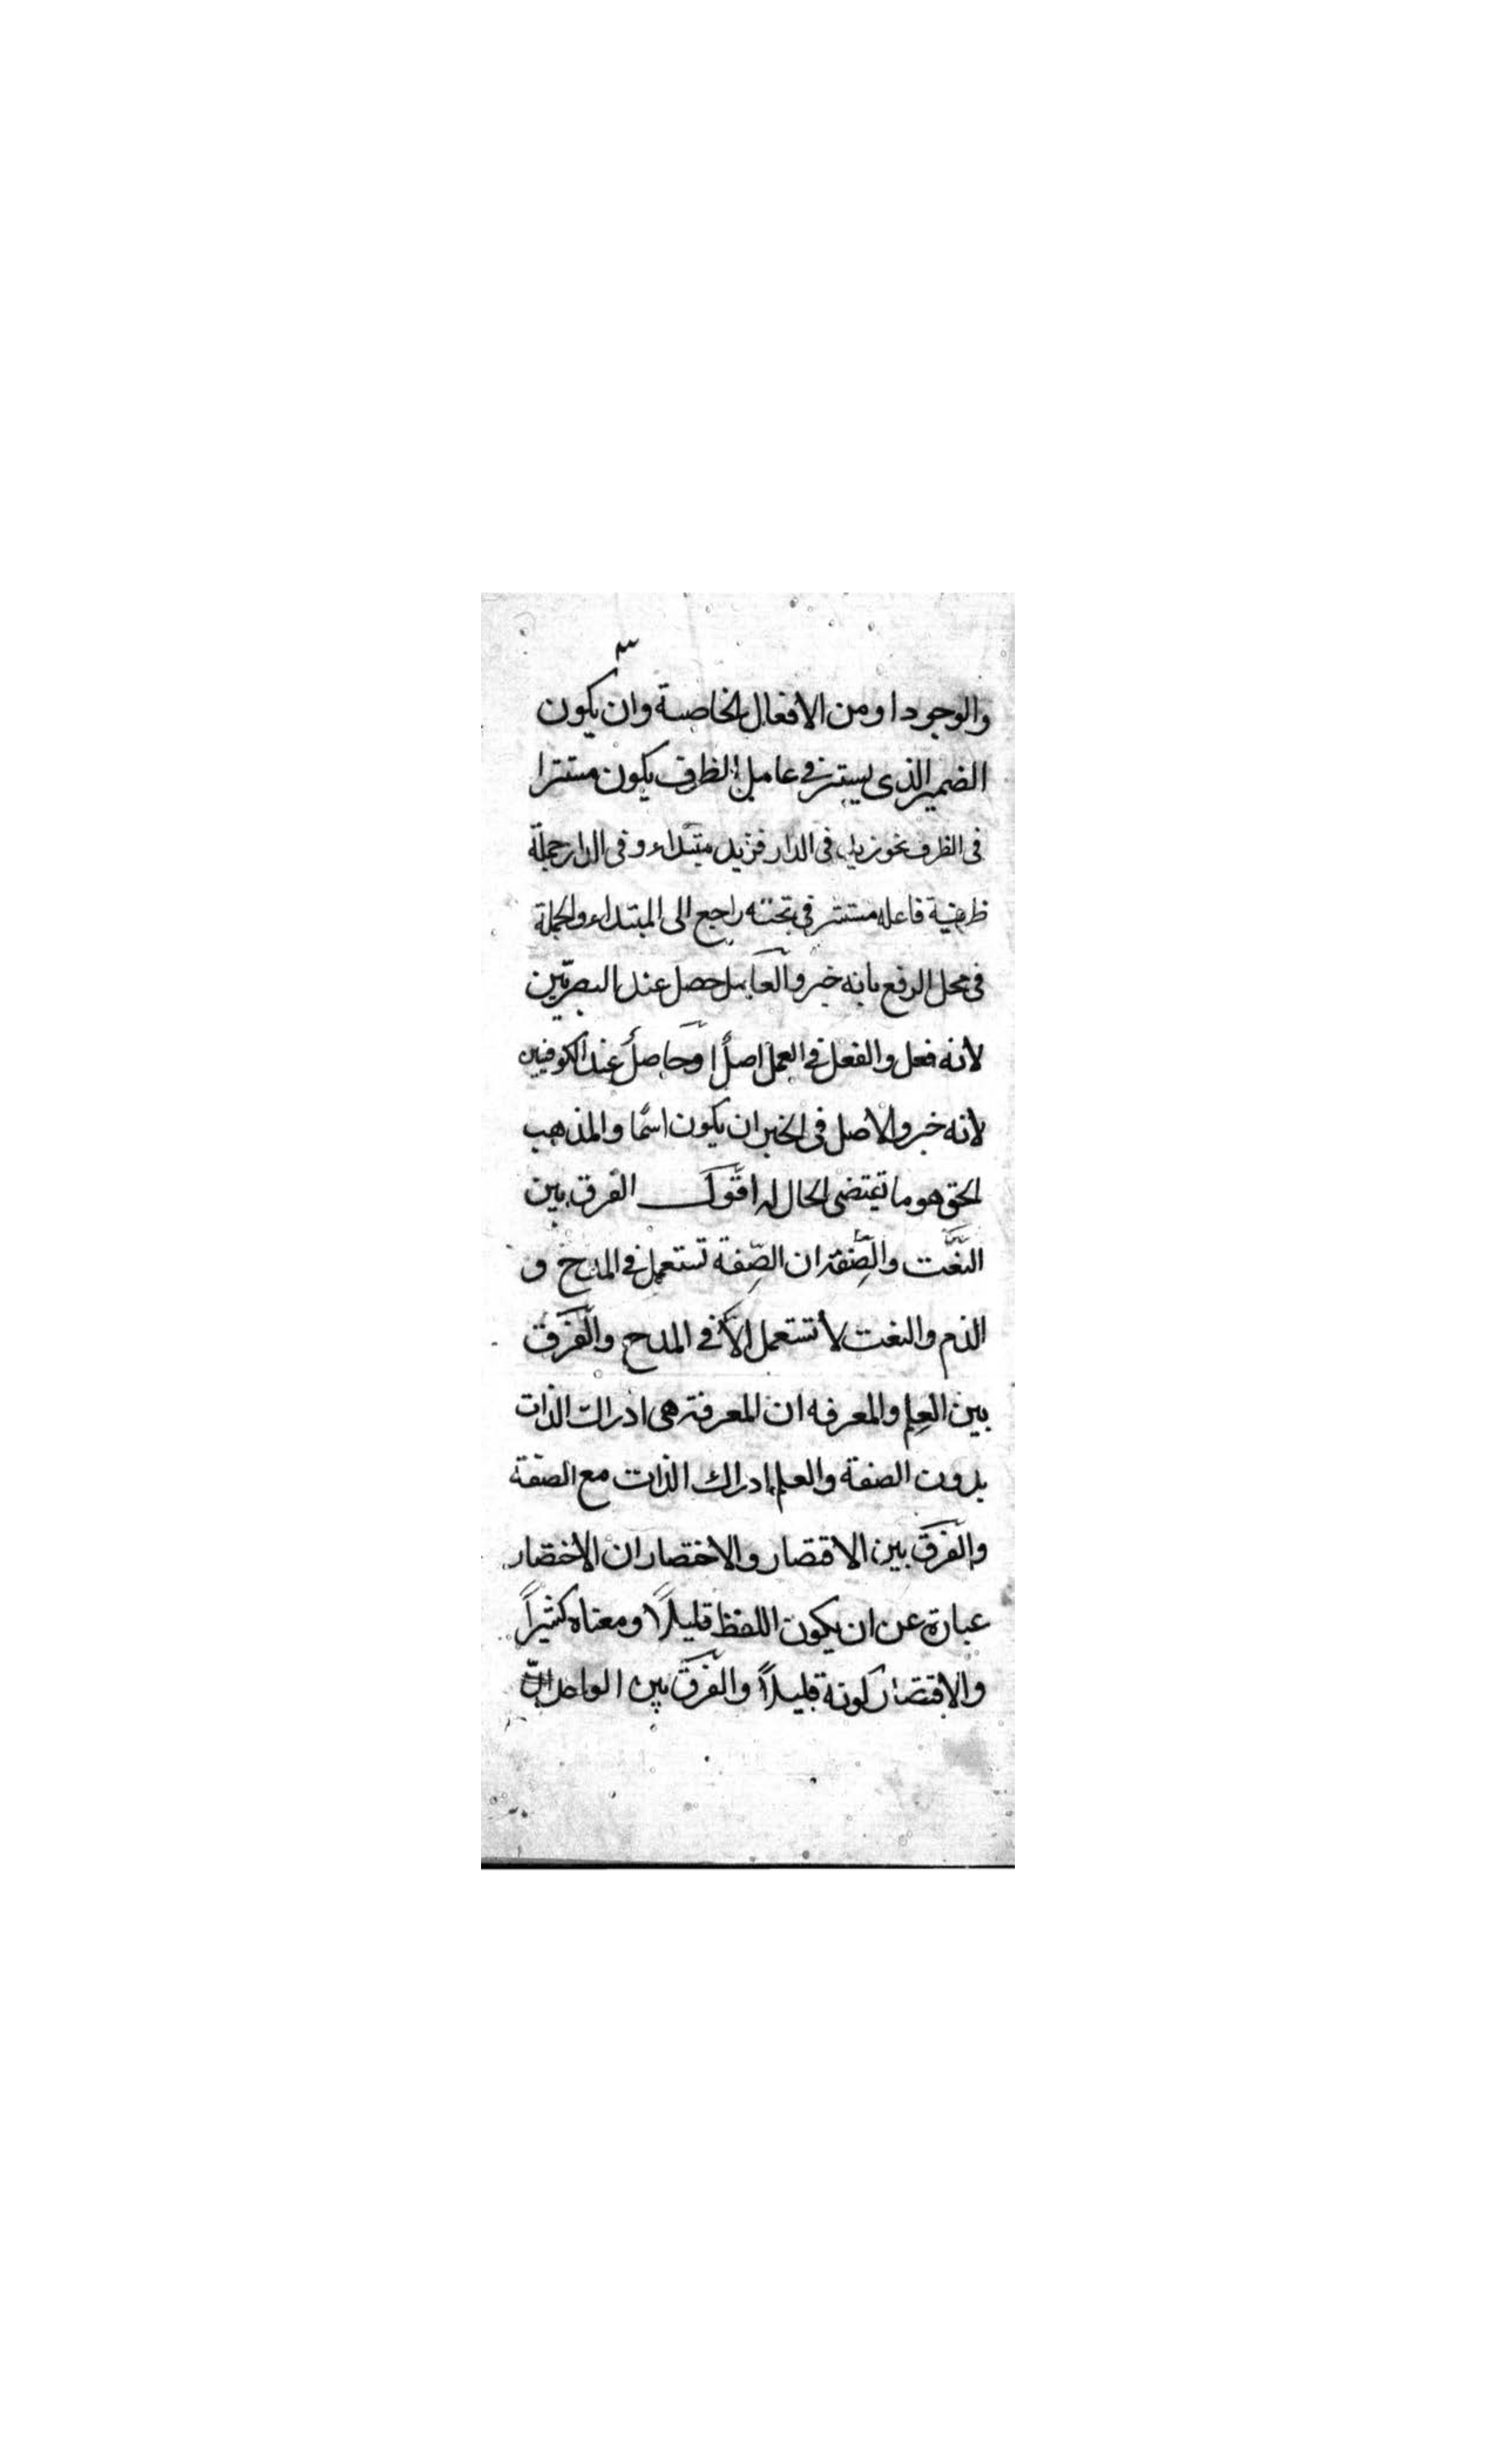 والوجود او من الافعال الخاصة وان يكون
الضمير الذى يستتر فى عامل الظرف يكون مستترا
فى الظرف نحو زيد فى الدار فزيد مبتداء وفى الدار جملة
ظرفية فاعله مستتر فى تحته راجع الى المبتداء والجملة
فى محل الرفع بانه خبر والعامل حصل عند البصريّين
لانه فعل والفعل فى العمل اصلٌ او حاصل عند الكوفيين
لانه خبر والاصل فى الخبر ان يكون اسمًا والمذهب
الحق هو ما تقتضى الحال له اقول الفرق بين
النعت والصّفة ان الصّفة تستعمل فى المدح و
الذم والنعت لا تستعمل الا فى المدح والفرق
بين العلم والمعرفه ان المعرفة هى ادراك الذات
بدون الصفة والعلم ادراك الذات مع الصفة
والفرق بين الاقتصار والاختصار ان الاختصار
عبارة عن ان يكون اللفظ قليلاً ومعناه كثيراً
والاقتصار كونه قليلاً والفرق بين الواحد